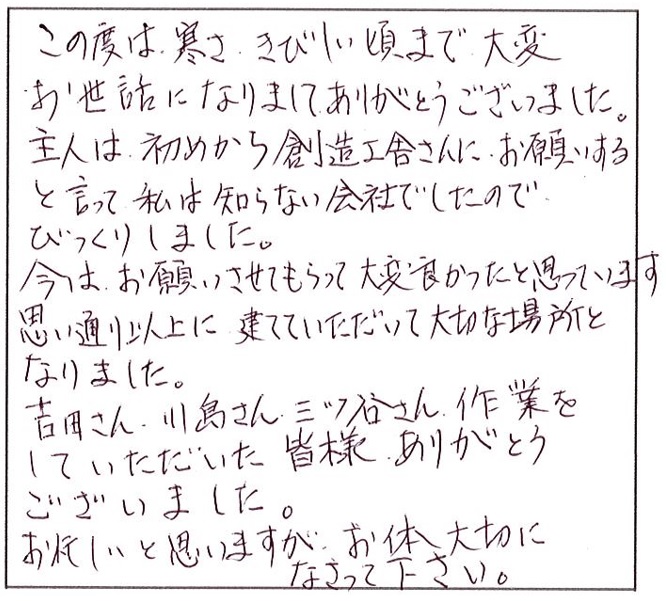 この度は、寒さ、きびしい頃まで、大変
お世話になりまして、ありがとうございました。
主人は、初めから創造工舎さんに、お願いする
と言って、私は知らない会社でしたので、
びっくりしました。
今は、お願いさせてもらって大変良かったと思っています
思い通り以上に、建てていただいて大切な場所と
なりました。
吉田さん、川島さん、三ツ谷さん、作業を
していただいた皆様、ありがとう
ございました。
お忙しいと思いますが、お体、大切に
なさって下さい。